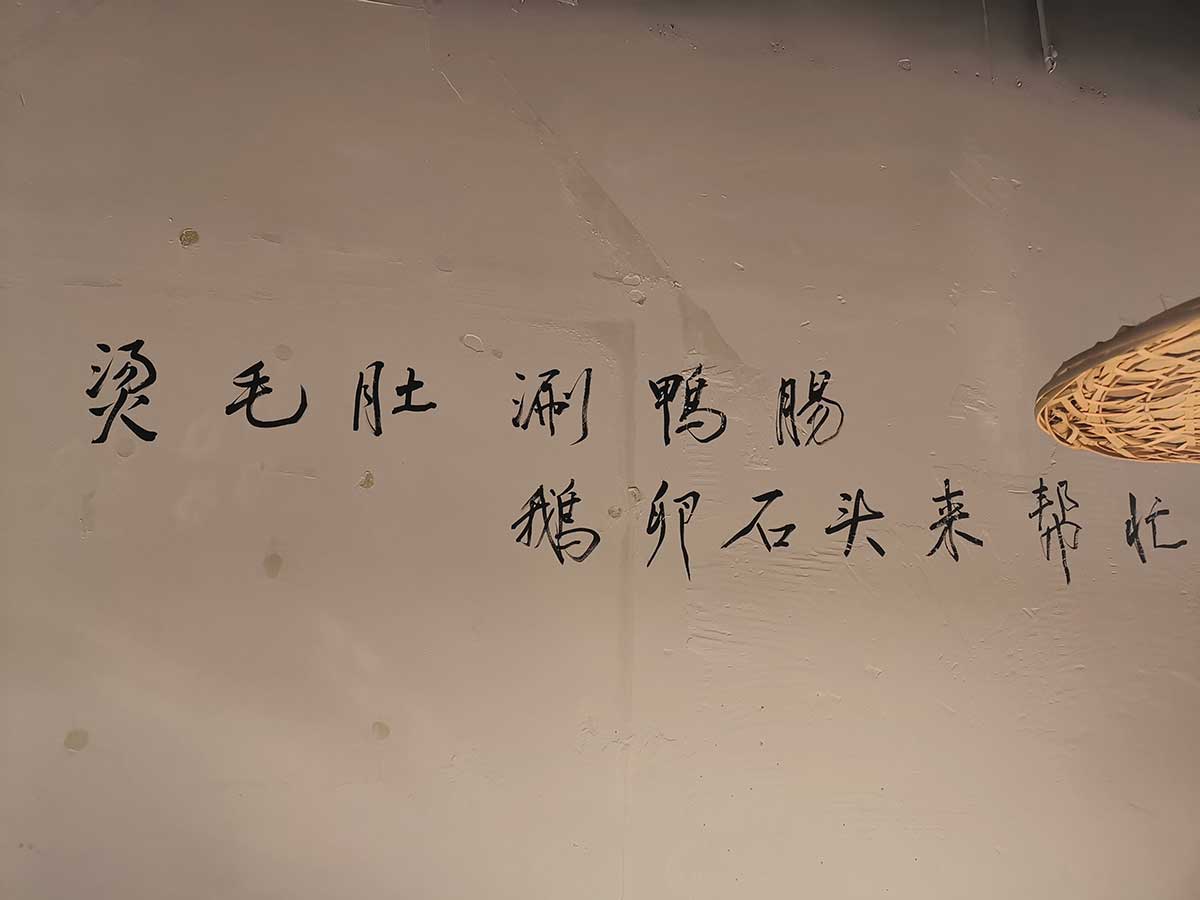 烫毛肚 涮鸭肠
鹅卵石头来帮忙